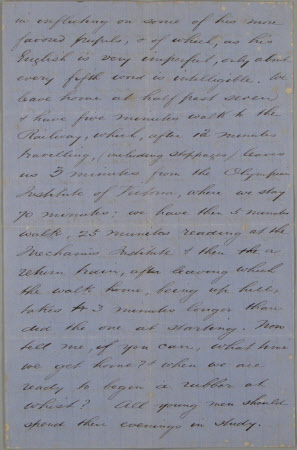 in inflicting on some of his more
favored pupils, & of which, as his
English is very imperfect, only about
every fifth word is intelligible. We
leave home at half past seven
& have five minutes walk to the
Railway, which, after 12 minutes
travelling, (including stoppages) leaves
us 3 minutes from the Olympian
Institute of, where we stay
70 minutes: we have then 5 minutes
walk, 25 minutes reading at the
Mechanics Institute & then the
return train, after leaving which
the walk home, being up hill,
takes 3 minutes longer than
did the one at starting. Now
tell me, if you can, what time
we get home? & when we are
ready to begin a rubber at
whist? All young men should
spend their evenings in study.